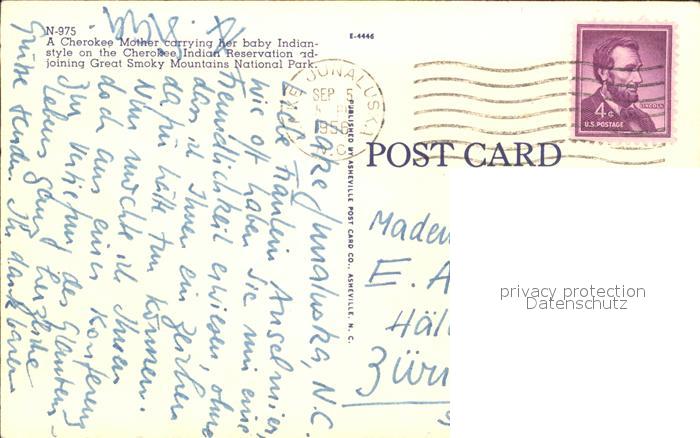 N-975
A Cherokee Mother carrying her baby Indian-
style on the Cherokee Indian Reservation ad-
joining Great Smoky Mountains National Park.
E-4446
LAKE JUNALUSKA
SEP 5
1956
N.C.
4¢
LINCOLN
U.S. POSTAGE
POST CARD
PUBLISHED BY ASHEVILLE POST CARD CO., ASHEVILLE, N. C.
Lake Junaluska, N.C.
Liebe Fräulein Anselmier,
wie oft haben Sie mir eine
Freundlichkeit erwiesen, ohne
dass ich Ihnen ein Zeichen
da hätte tun können.
Nun möchte ich Ihnen
doch aus einer Konferenz
zur Vertiefung des Glaubens-
lebens ganz herzliche
Grüsse senden. In dankbarem
Madem
E. A
Häl
Züri
privacy protection
Datenschutz